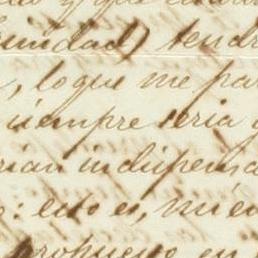 y que
unidad) tendr
, lo que me pa
siempre seria
rian indispensa
: esto es, mi en
propuesto en